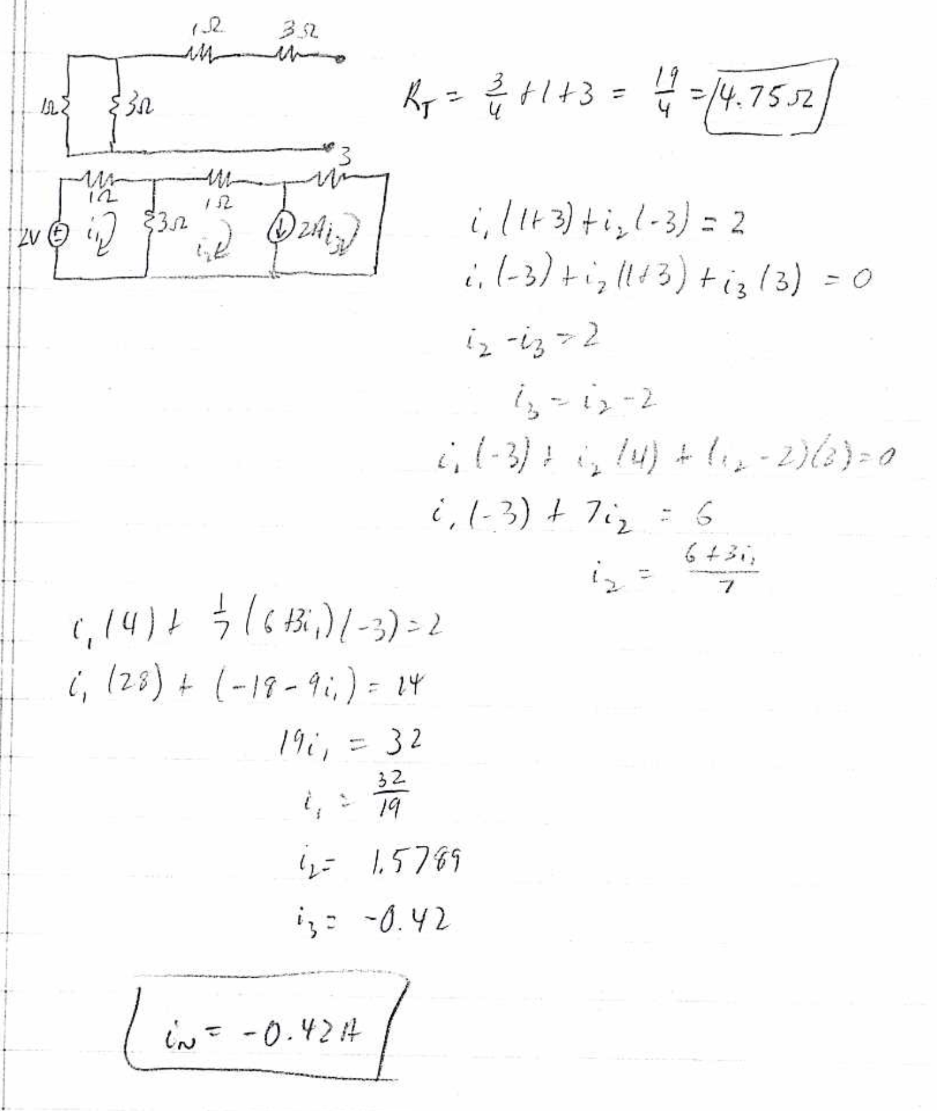 1Ω 3Ω
1Ω 3Ω
R_T = 3/4 + 1 + 3 = 19/4 = 4.75Ω
3
1Ω 1Ω
2V i₁ 3Ω i₂ 2A i₃
i₁(1+3) + i₂(-3) = 2
i₁(-3) + i₂(1+3) + i₃(3) = 0
i₂ - i₃ = 2
i₃ = i₂ - 2
i₁(-3) + i₂(4) + (i₂ - 2)(3) = 0
i₁(-3) + 7i₂ = 6
i₂ = (6+3i₁)/7
i₁(4) + 1/7(6+3i₁)(-3) = 2
i₁(28) + (-18 - 9i₁) = 14
19i₁ = 32
i₁ = 32/19
i₂ = 1.5789
i₃ = -0.42
i_N = -0.42A